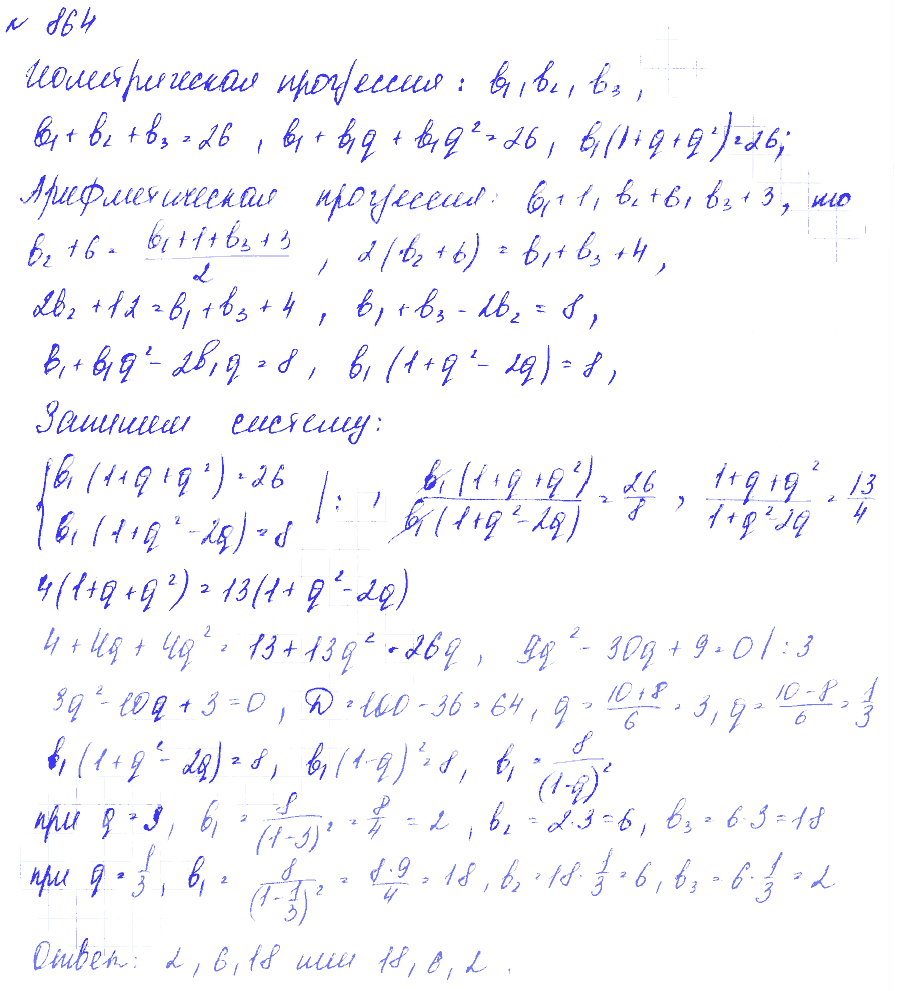 № 864
Геометрическая прогрессия: b₁, b₂, b₃,
b₁ + b₂ + b₃ = 26, b₁ + b₁q + b₁q² = 26, b₁(1+q+q²)=26;
Арифметическая прогрессия: b₁+1, b₂+6, b₃+3, то
b₂ + 6 = (b₁+1+b₃+3)/2, 2(b₂+6) = b₁+b₃+4,
2b₂ + 12 = b₁ + b₃ + 4, b₁ + b₃ - 2b₂ = 8,
b₁ + b₁q² - 2b₁q = 8, b₁(1+q² - 2q) = 8,
Запишем систему:
{b₁(1+q+q²)=26 b₁(1+q²-2q)=8 |:, b₁(1+q+q²)/b₁(1+q²-2q) = 26/8, (1+q+q²)/(1+q²-2q) = 13/4
4(1+q+q²) = 13(1+q²-2q)
4+4q+4q² = 13+13q² - 26q, 9q² - 30q + 9 = 0 |:3
3q² - 10q + 3 = 0, D = 100 - 36 = 64, q = (10+8)/6 = 3, q = (10-8)/6 = 1/3
b₁(1+q² - 2q) = 8, b₁(1-q)² = 8, b₁ = 8/(1-q)²
при q = 3, b₁ = 8/(1-3)² = 8/4 = 2, b₂ = 2·3 = 6, b₃ = 6·3 = 18
при q = 1/3, b₁ = 8/(1-1/3)² = 8·9/4 = 18, b₂ = 18·1/3 = 6, b₃ = 6·1/3 = 2
Ответ: 2, 6, 18 или 18, 6, 2.